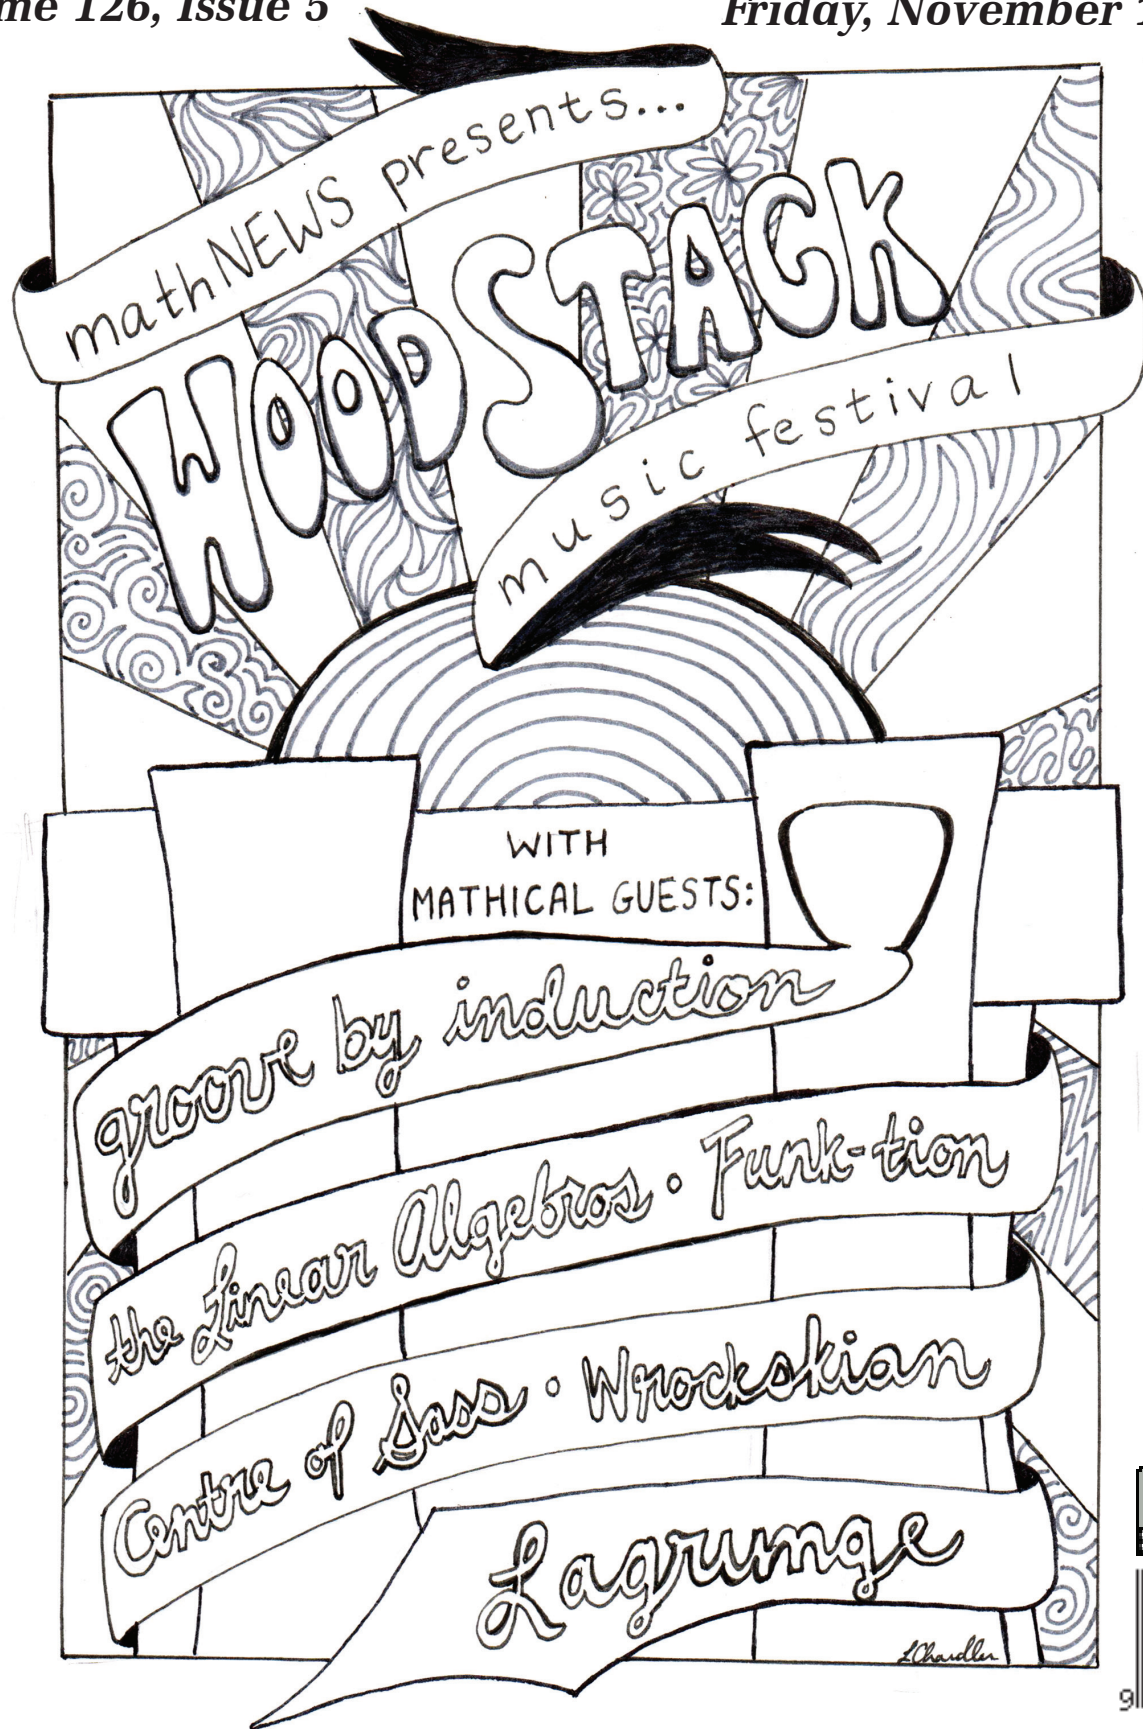 me 126, Issue 5
Friday, November
mathNEWS presents...
WOODSTACK
music festival
WITH
MATHICAL GUESTS:
groove by induction
the Linear Algebros • Funk-tion
Centre of Sass • Wrockskian
Lagrunge
LChandler
9